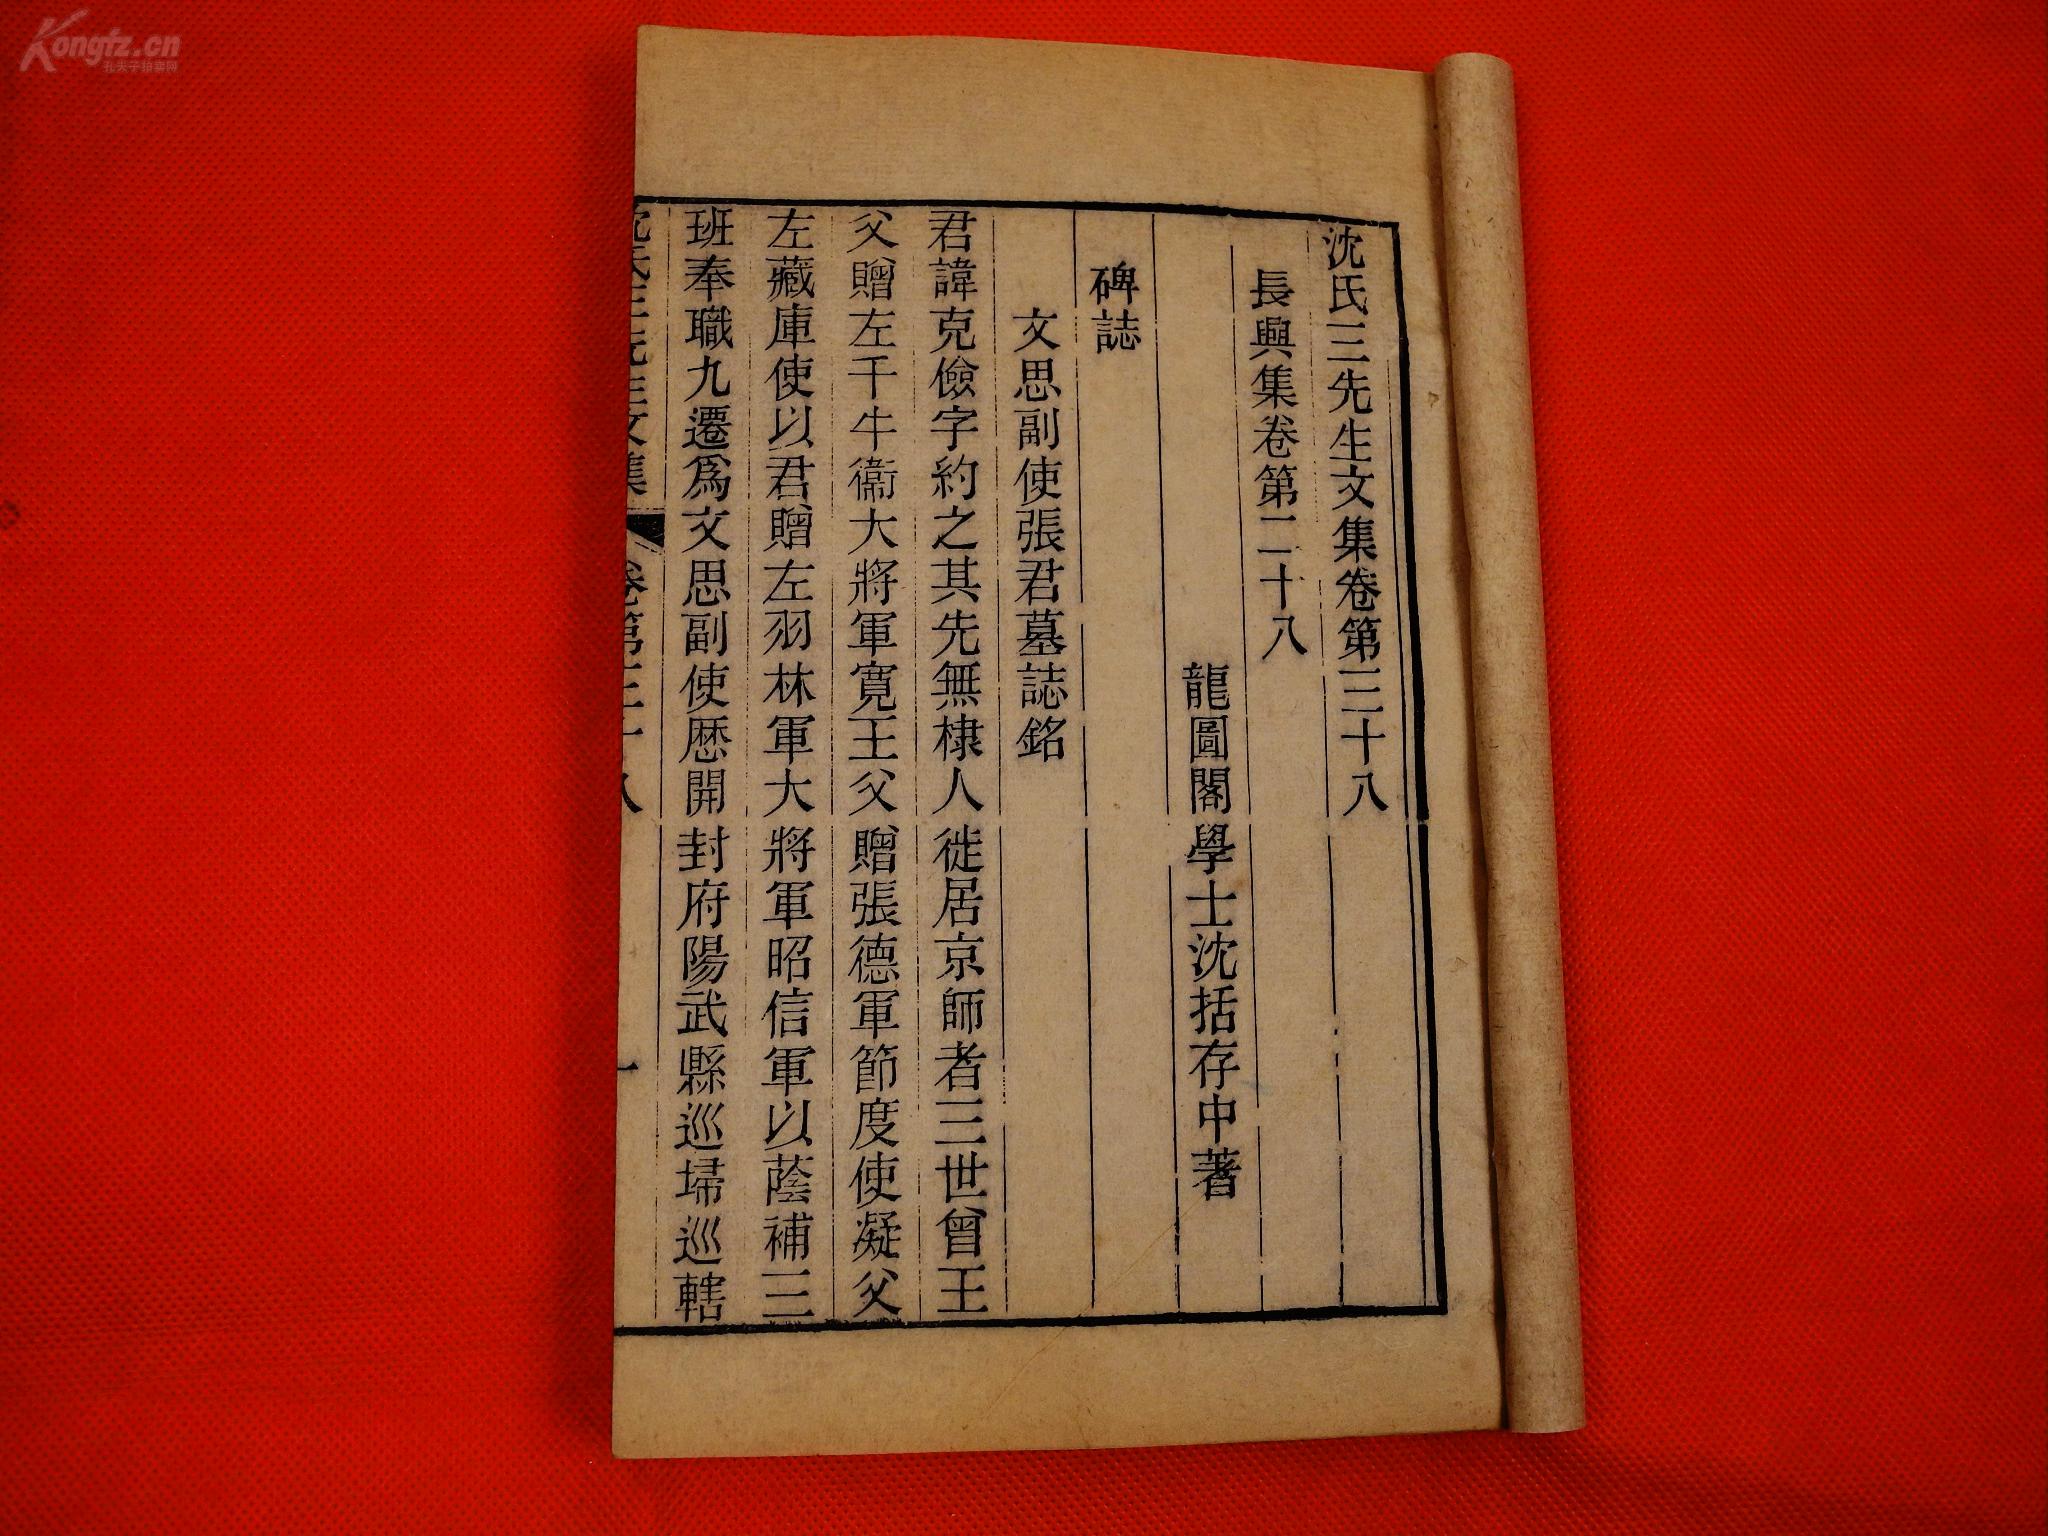 沈氏三先生文集卷第三十八
長興集卷第二十八
龍圖閣學士沈括存中著
碑誌
文思副使張君墓誌銘
君諱克儉字約之其先無棣人徙居京師者三世曾王
父贈左千牛衞大將軍寬王父贈張德軍節度使凝父
左藏庫使以君贈左羽林軍大將軍昭信軍以蔭補三
班奉職九遷爲文思副使歷開封府陽武縣巡埽巡轄
沈氏三先生文集 卷第三十八 一
Kongfz.cn
孔夫子拍卖网